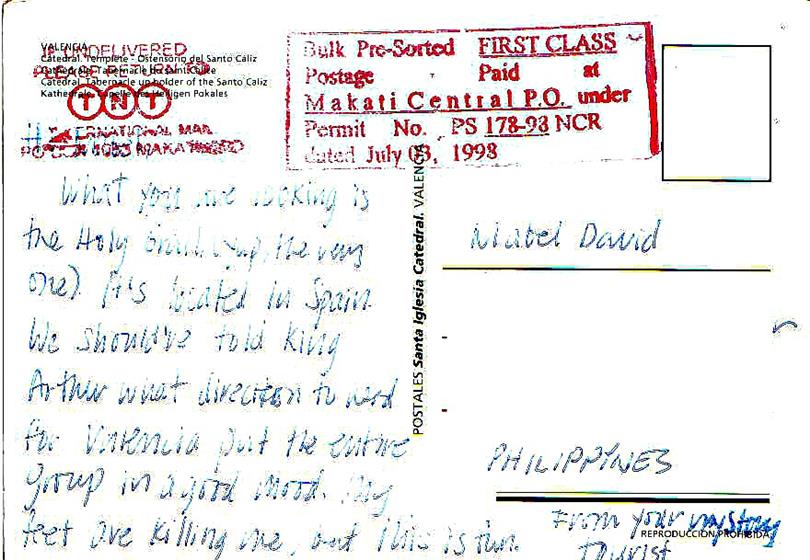 VALENCIA
Catedral. Templete - Ostensorio del Santo Cáliz
Catedral. Tabernacle up holder of the Santo Caliz
Kathedrale. Kapelle des Heiligen Pokales
IF UNDELIVERED
TNT
INTERNATIONAL MAIL
Bulk Pre-Sorted FIRST CLASS
Postage Paid at
Makati Central P.O. under
Permit No. PS 178-98 NCR
dated July 03, 1998
What you are looking is
the Holy Grail (yup, the very
one). It's located in Spain.
We should've told King
Arthur what direction to head
for Valencia put the entire
group in a good mood. My
feet are killing me, but this is fun.
POSTALES Santa Iglesia Catedral. VALENCIA
Mabel David
PHILIPPYNES
From your
tourist
REPRODUCCION PROHIBIDA